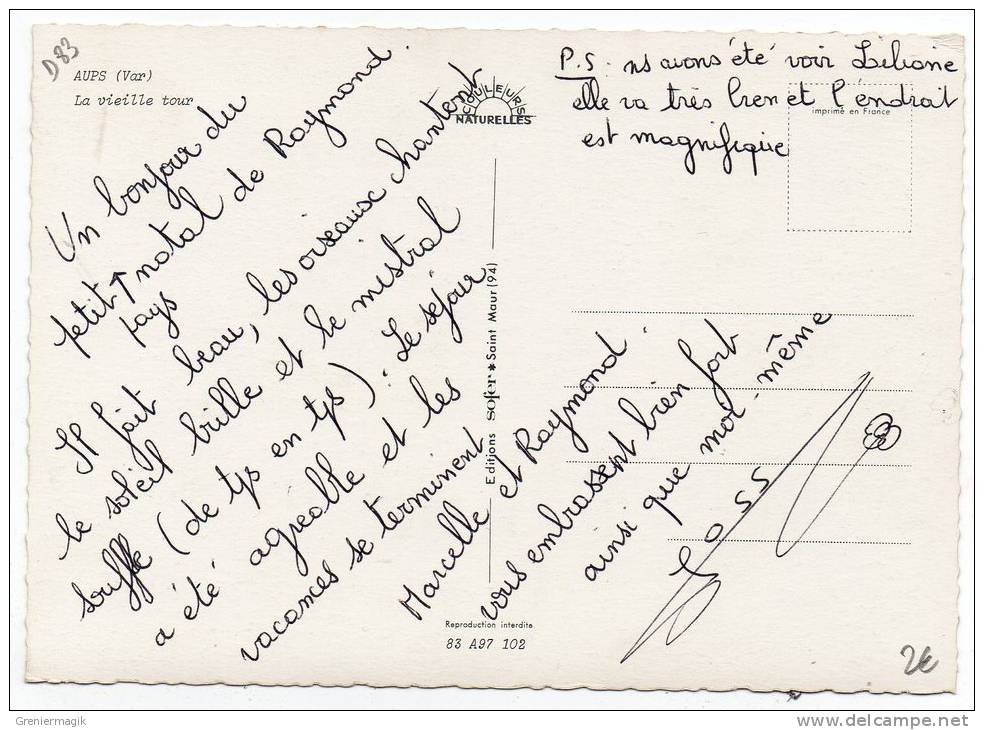 D83
AUPS (Var)
La vieille tour
COULEURS
NATURELLES
imprimé en France
P.S. ns avons été voir Liliane
elle va très bien et l'endrait
est magnifique
Un bonjour du
petit ↑ natal de Raymond.
pays
Il fait beau, les oiseaux chantent
le soleil brille et le mistral
souffle (de tps en tps). Le séjour
a été agréable et les
vacances se terminent
Marcelle et Raymond
vous embrassent bien fort
ainsi que moi-même
Joss
Editions SOFER * Saint Maur (94)
Reproduction interdite
83 A97 102
2€
Greniermagik
www.delcampe.net